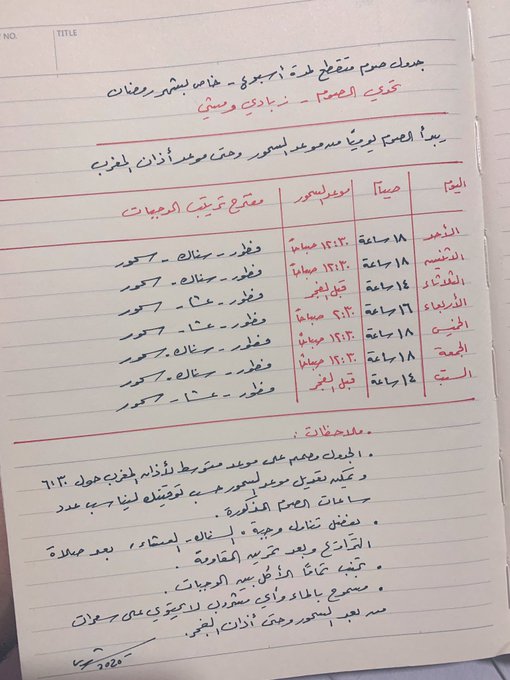 NO.
TITLE
جدول صوم متقطع لمدة اسبوع - خاص بشهر رمضان
تحدي الصوم - زبادي ومشي
يبدأ الصوم يوميًا من موعد السحور وحتى موعد أذان المغرب
اليوم صيام موعد السحور مقترح ترتيب الوجبات
الأحد ١٨ ساعة ١٢:٣٠ صباحًا فطور - سناك - سحور
الاثنين ١٨ ساعة ١٢:٣٠ صباحًا فطور - سناك - سحور
الثلاثاء ١٤ ساعة قبل الفجر فطور - عشا - سحور
الأربعاء ١٦ ساعة ٢:٣٠ صباحًا فطور - عشا - سحور
الخميس ١٨ ساعة ١٢:٣٠ صباحًا فطور - سناك - سحور
الجمعة ١٨ ساعة ١٢:٣٠ صباحًا فطور - سناك - سحور
السبت ١٤ ساعة قبل الفجر فطور - عشا - سحور
ملاحظات :
• الجدول مصمم على موعد متوسط لأذان المغرب حول ٦:٣٠
ويمكن تعديل موعد السحور حسب توقيتك ليناسب عدد
ساعات الصوم المذكورة.
• يفضل تناول وجبة السناك - العشاء، بعد صلاة
التراويح وبعد تمرين المقاومة.
• تجنب تمامًا الأكل بين الوجبات.
• مسموح بالماء وأي مشروب لا يحتوي على سعرات
من بعد السحور وحتى أذان الفجر.
2020